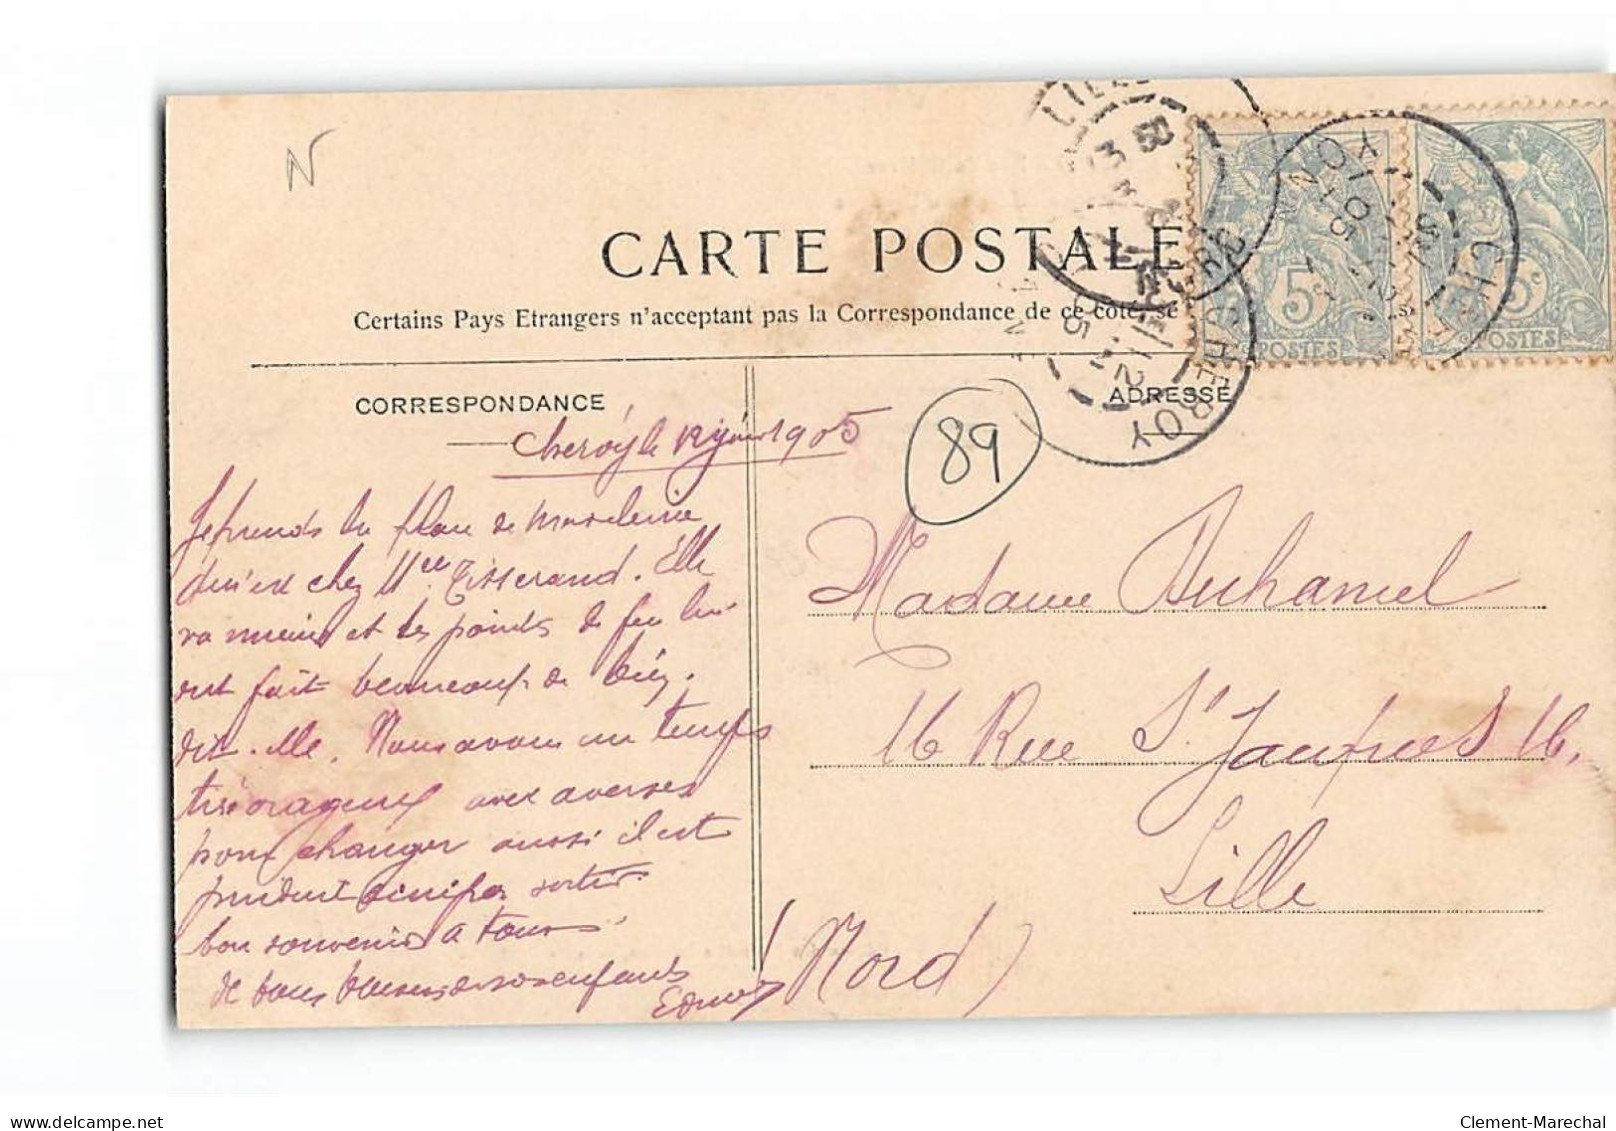 N
LILLE
CARTE POSTALE
Certains Pays Etrangers n'acceptent pas la Correspondance de ce côté se
CHEROY YONNE
5c
POSTES
5c
POSTES
CORRESPONDANCE
ADRESSE
89
Cheroy le 12 juin 1905
Je prends du plan de Madeleine
qui est chez Mlle Tisserand. Elle
va mieux et les points de feu lui
ont fait beaucoup de bien,
dit-elle. Nous avons un temps
très orageux avec averses
pour changer aussi il est
prudent de ne pas sortir.
bon souvenir à tous
de bons baisers de vos enfants
Edmond
Madame Duhamel
16 Rue St Jacques 16,
Lille
(Nord)
delcampe.net
Clement-Marechal